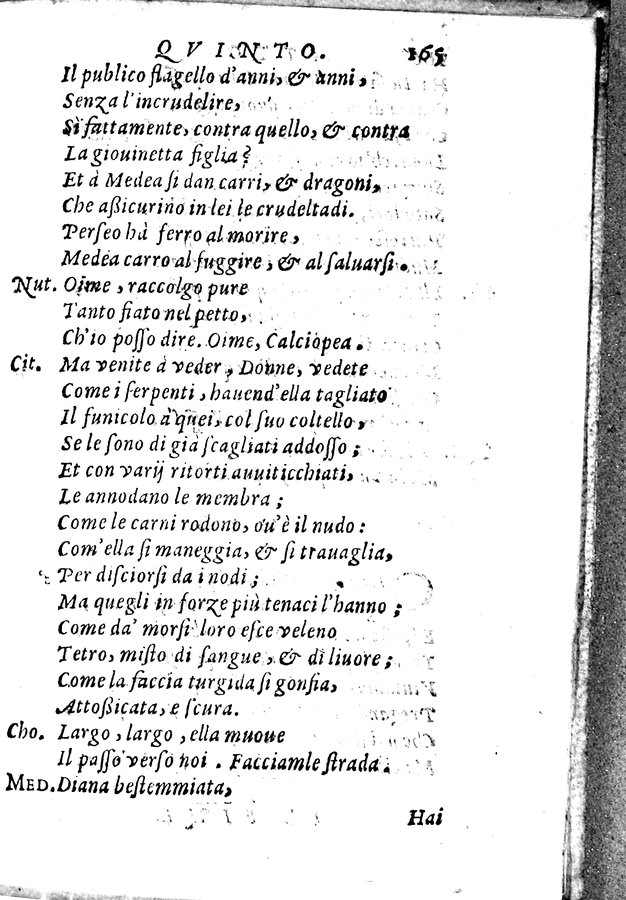 QVINTO. 165
Il publico flagello d'anni, & anni,
Senza l'incrudelire,
Si fattamente, contra quello, & contra
La giouinetta figlia?
Et à Medea si dan carri, & dragoni,
Che aßicurino in lei le crudeltadi.
Perseo hà ferro al morire,
Medea carro al fuggire, & al saluarsi.
Nut. Oime, raccolgo pure
Tanto fiato nel petto,
Ch'io posso dire. Oime, Calciopea.
Cit. Ma venite à veder, Donne, vedete
Come i serpenti, hauend'ella tagliato
Il funicolo à quei, col suo coltello,
Se le sono di già scagliati addosso;
Et con varij ritorti auuiticchiati,
Le annodano le membra;
Come le carni rodono, ou'è il nudo:
Com'ella si maneggia, & si trauaglia,
Per disciorsi da i nodi;
Ma quegli in forze più tenaci l'hanno;
Come da' morsi loro esce veleno
Tetro, misto di sangue, & di liuore;
Come la faccia turgida si gonfia,
Attoßicata, e scura.
Cho. Largo, largo, ella muoue
Il passo verso noi. Facciamle strada.
MED. Diana bestemmiata,
Hai